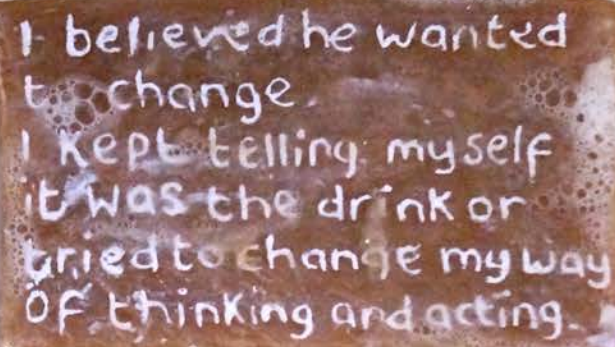 I believed he wanted
to change.
I kept telling myself
it was the drink or
tried to change my way
of thinking and acting.